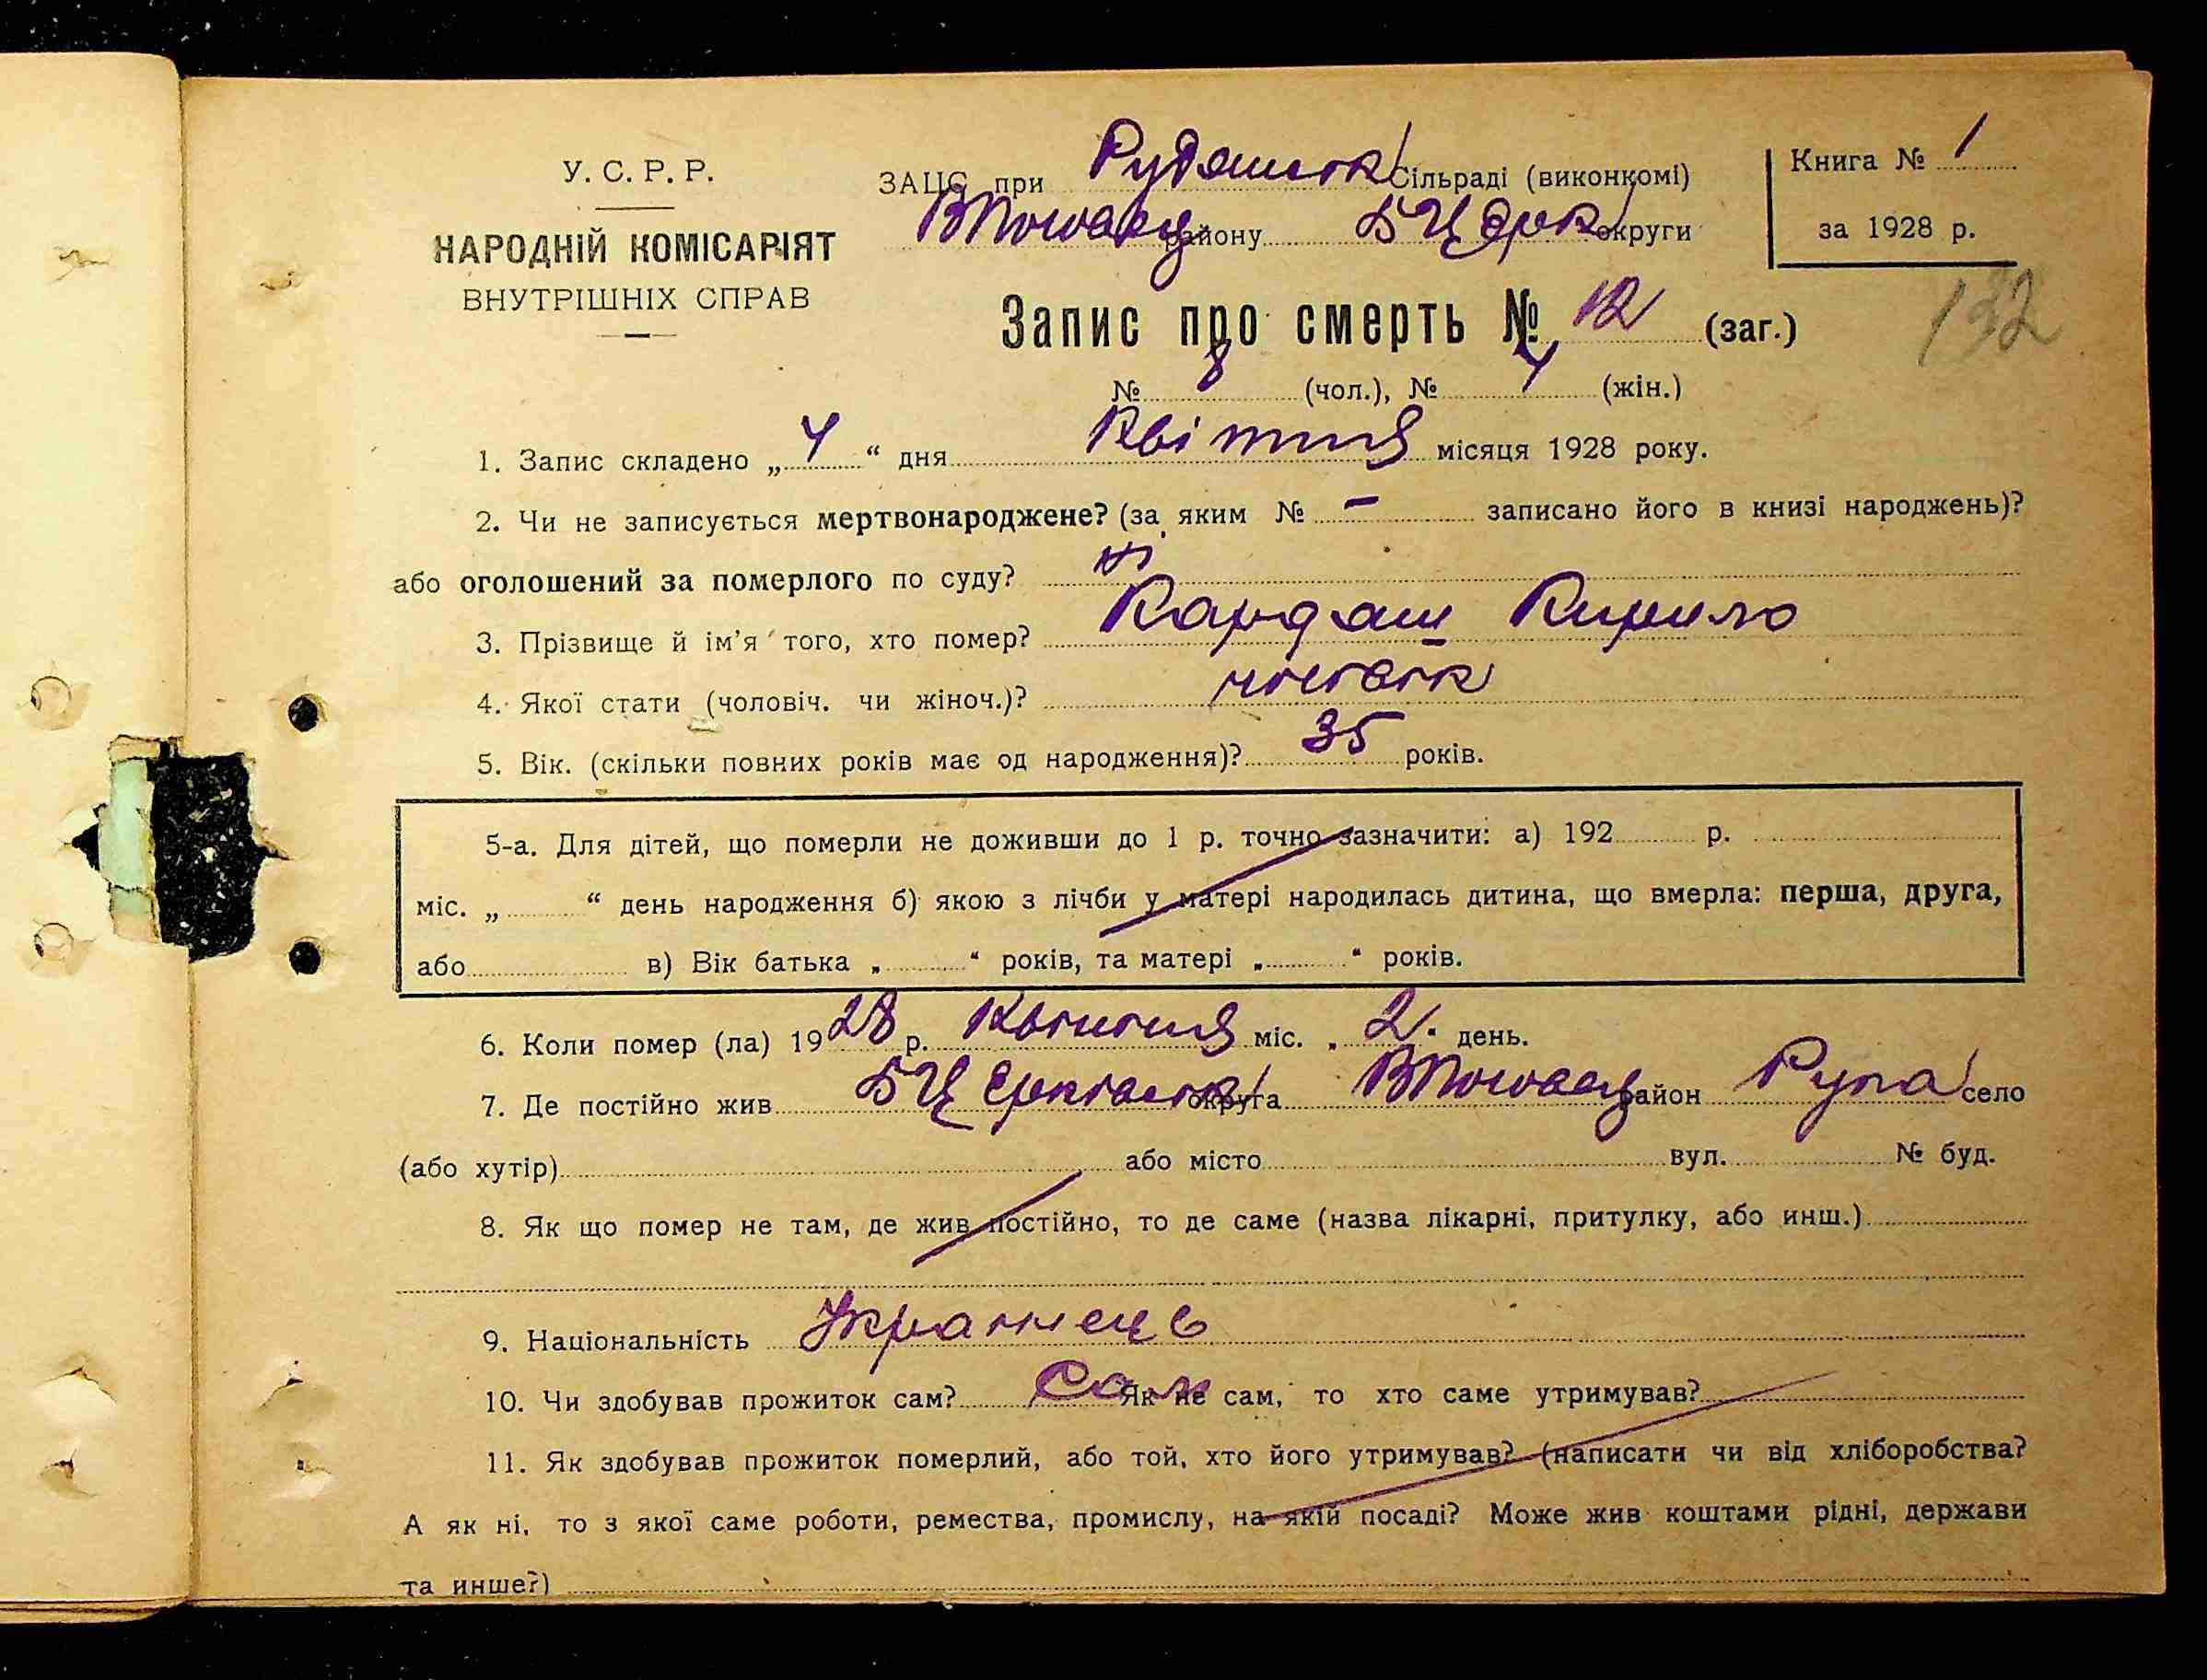 У. С. Р. Р.
НАРОДНІЙ КОМІСАРІЯТ
ВНУТРІШНІХ СПРАВ
ЗАЦС при Рудянськ Сільраді (виконкомі)
району БЦерк округи
Книга № 1
за 1928 р.
132
Запис про смерть № 12 (заг.)
№ 8 (чол.), № 4 (жін.)
1. Запис складено „ 4 “ дня Квітня місяця 1928 року.
2. Чи не записується мертвонароджене? (за яким № – записано його в книзі народжень)?
або оголошений за померлого по суду? ні
3. Прізвище й ім’я того, хто помер? Кардаш Кирило
4. Якої стати (чоловіч. чи жіноч.)? чоловік
5. Вік. (скільки повних років має од народження)? 35 років.
5-а. Для дітей, що померли не доживши до 1 р. точно зазначити: а) 192 р.
міс. „ “ день народження б) якою з лічби у матері народилась дитина, що вмерла: перша, друга,
або в) Вік батька „ “ років, та матері „ “ років.
6. Коли помер (ла) 1928 р. Квітня міс. „ 2 “ день.
7. Де постійно жив БЦерківськ округа район Руда село
(або хутір) або місто вул. № буд.
8. Як що помер не там, де жив постійно, то де саме (назва лікарні, притулку, або инш.)
9. Національність Украінець
10. Чи здобував прожиток сам? Сам Як не сам, то хто саме утримував?
11. Як здобував прожиток померлий, або той, хто його утримував? (написати чи від хліборобства?
А як ні, то з якої саме роботи, ремества, промислу, на якій посаді? Може жив коштами рідні, держави
та инше?)